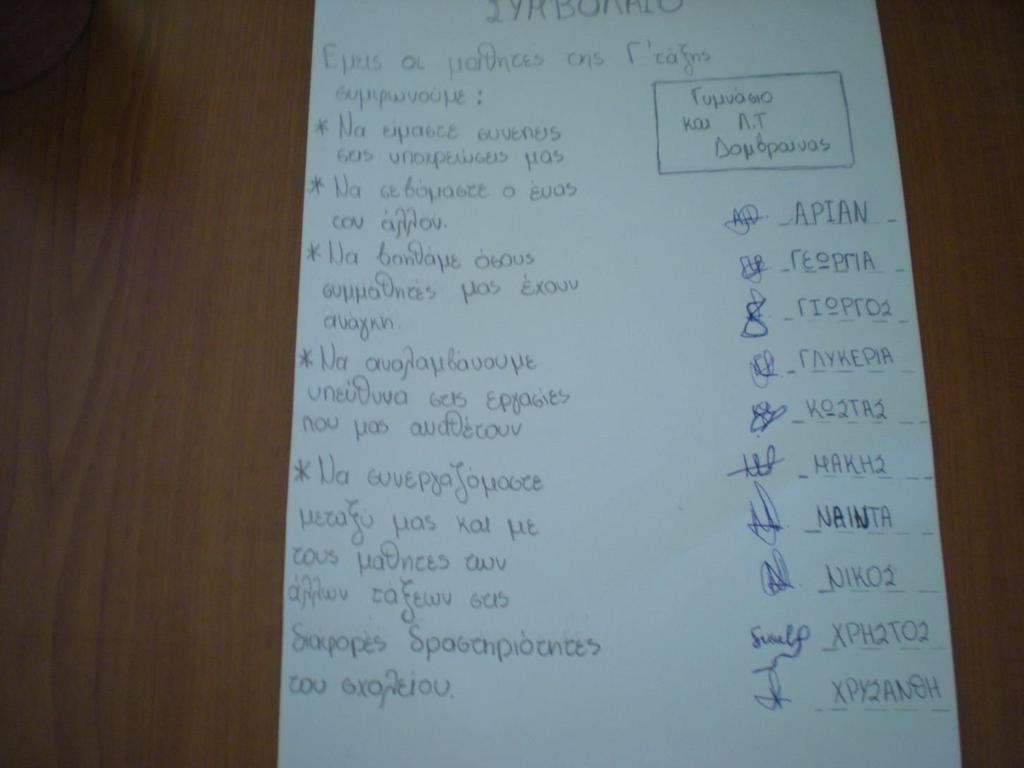 ΣΥΜΒΟΛΑΙΟ
Εμεις οι μαθητες της Γ' τάξης
συμφωνούμε:
* Να είμαστε συνεπεις
στις υποχρεώσεις μας
* Να σεβόμαστε ο ένας
τον άλλον.
* Να βοηθάμε όσους
συμμαθητές μας έχουν
ανάγκη.
* Να αναλαμβάνουμε
υπεύθυνα στις εργασίες
που μας αναθέτουν
* Να συνεργαζόμαστε
μεταξύ μας και με
τους μαθητες των
άλλων τάξεων στις
διαφορές δραστηριότητες
του σχολείου.
Γυμνάσιο
και Λ.Τ
Δομβραίνας
ΑΡΙΑΝ
ΓΕΩΡΓΙΑ
ΓΙΩΡΓΟΣ
ΓΛΥΚΕΡΙΑ
ΚΩΣΤΑΣ
ΜΑΚΗΣ
ΝΑΙΝΤΑ
ΝΙΚΟΣ
ΧΡΗΣΤΟΣ
ΧΡΥΣΑΝΘΗ